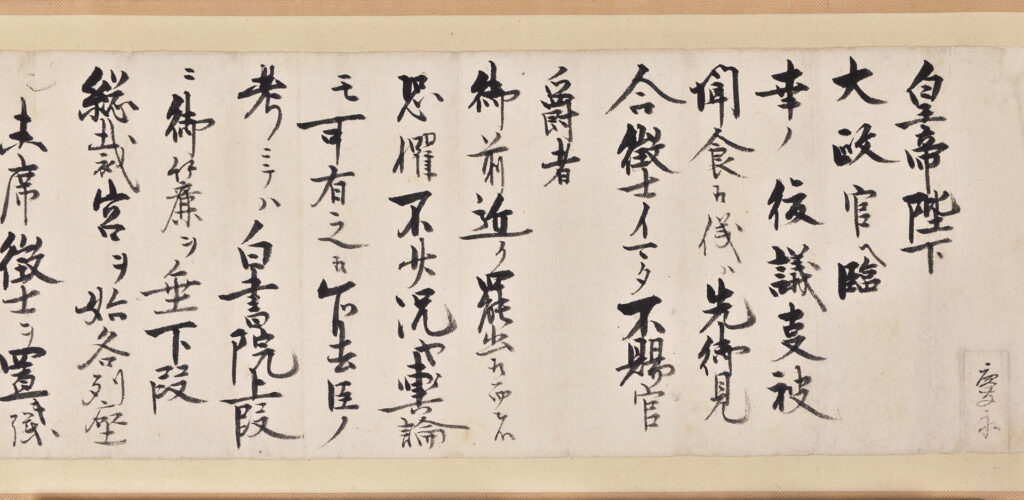 慶永
皇帝陛下
大政官へ臨
幸ノ後議事被
聞食候儀ハ先御見
合徴士イマタ不賜官
爵者
御前近ク罷出候而者
恐懼不少況や輿論
モ可有之候乍去臣ノ
考ニテハ白書院上段
ニ御簾ヲ垂下段
総裁宮ヲ始各列座
末席徴士ヲ置